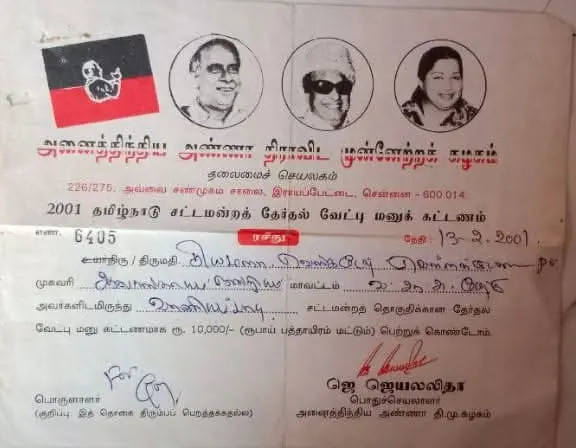 அனைத்திந்திய அண்ணா திராவிட முன்னேற்றக் கழகம்
தலைமைச் செயலகம்
226/275, அவ்வை சண்முகம் சாலை, இராயப்பேட்டை, சென்னை - 600 014.
2001 தமிழ்நாடு சட்டமன்றத் தேர்தல் வேட்பு மனுக் கட்டணம்
எண். 6405 ரசீது தேதி : 13-2-2001
உயர்திரு / திருமதி
முகவரி மாவட்டம்
அவர்களிடமிருந்து சட்டமன்றத் தொகுதிக்கான தேர்தல்
வேட்பு மனு கட்டணமாக ரூ. 10,000/- (ரூபாய் பத்தாயிரம் மட்டும்) பெற்றுக் கொண்டோம்.
ஜெ ஜெயலலிதா
பொருளாளர் பொதுச்செயலாளர்
(குறிப்பு இத் தொகை திருப்பப் பெறத்தக்கதல்ல) அனைத்திந்திய அண்ணா தி.மு.கழகம்